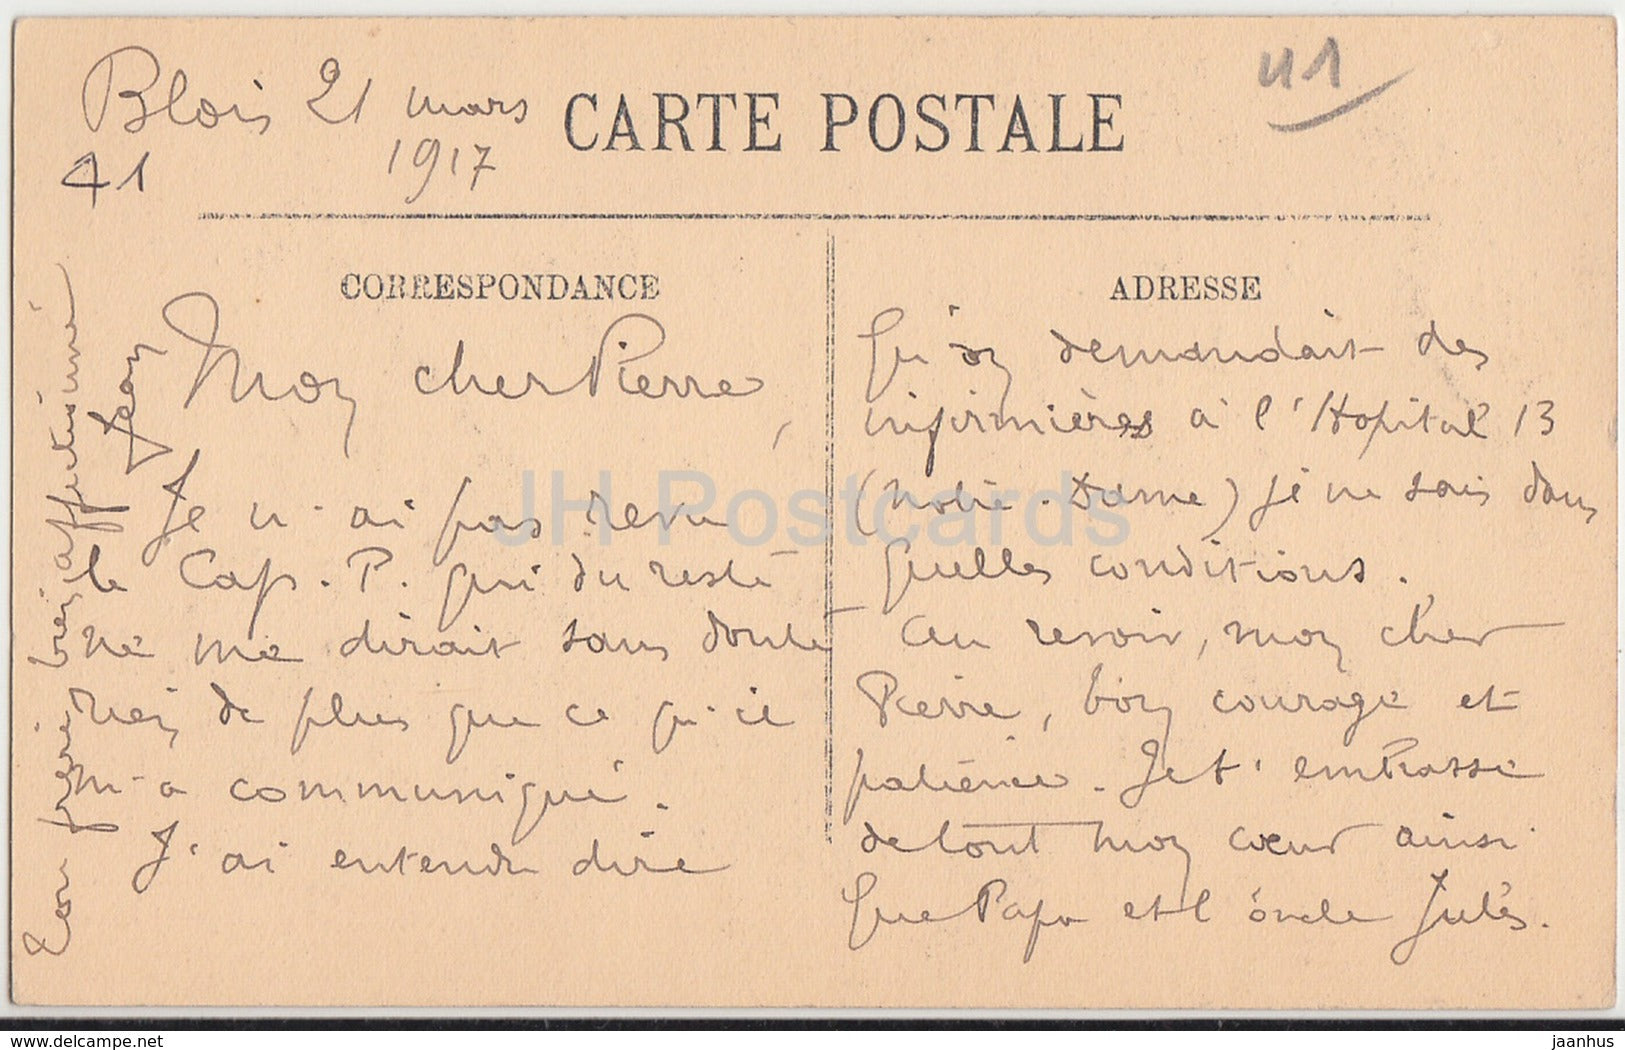 Blois 21 mars
1917
41
41
CARTE POSTALE
CORRESPONDANCE
Mon cher Pierre,
Je n'ai pas revu
le Cap. P. qui du reste
ne me dirait sans doute
rien de plus que ce qu'il
m'a communiqué.
J'ai entendu dire
ADRESSE
Qu'on demandait des
infirmières à l'Hopital 13
(Notre-Dame) je ne sais dans
quelles conditions.
Au revoir, mon cher
Pierre, bon courage et
patience. Je t'embrasse
de tout mon cœur ainsi
que Papa et l'oncle Jules.
Ton frère très affectionné
Jean
JH Postcards
delcampe.net
jaanhus